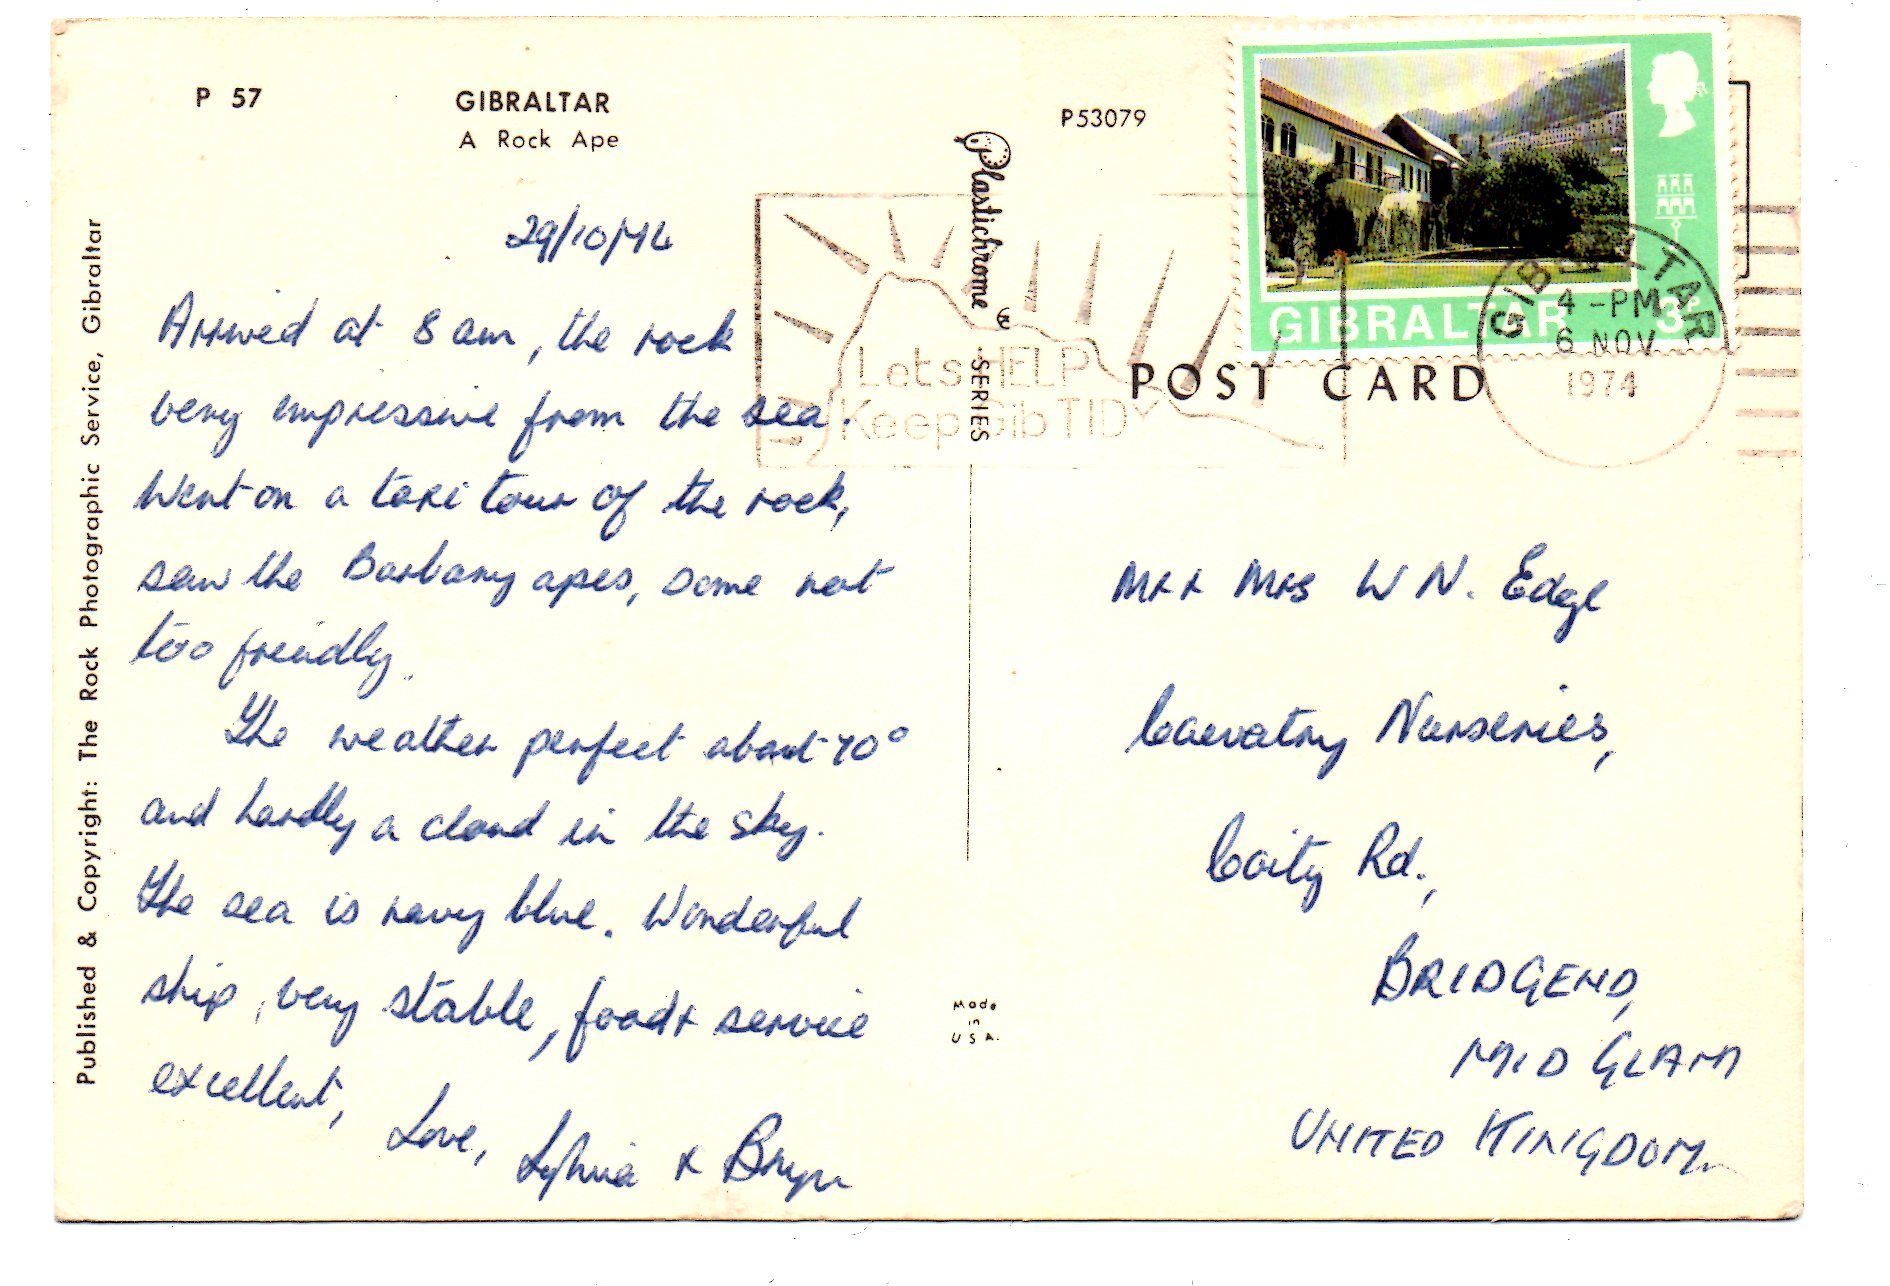 P 57
GIBRALTAR
A Rock Ape
P53079
Published & Copyright: The Rock Photographic Service, Gibraltar
Plastichrome
SERIES
29/10/74
Arrived at 8 am, the rock
very impressive from the sea.
Went on a taxi tour of the rock,
saw the Barbary apes, some not
too friendly.
The weather perfect about 70°
and hardly a cloud in the sky.
The sea is navy blue. Wonderful
ship, very stable, food & service
excellent,
Love,
Sylvia & Bryn
Lets HELP
Keep Gib TIDY
GIBRALTAR 3p
GIBRALTAR
4 - PM
6 NOV
1974
POST CARD
Mr & Mrs W N. Edge
Nurseries,
Coity Rd.,
BRIDGEND,
MID GLAM
UNITED KINGDOM.
Made
in
U S A.